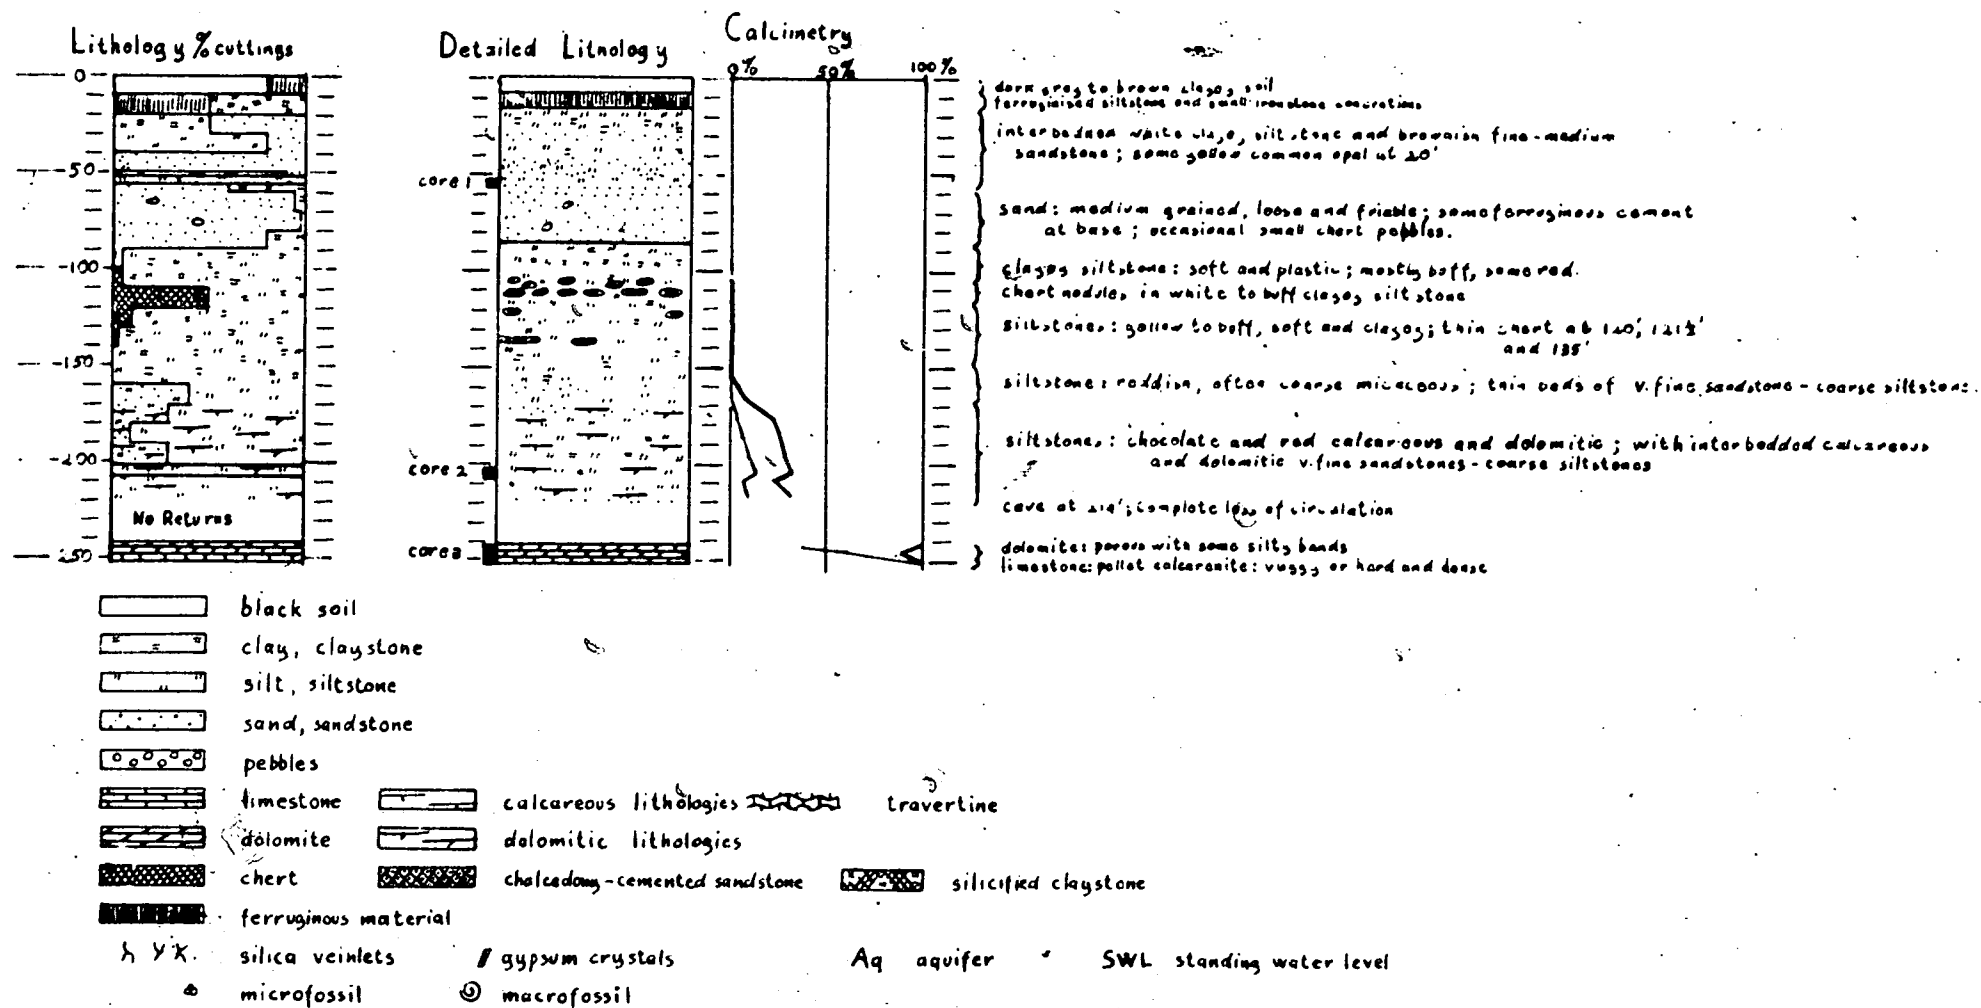 Lithology % cuttings
Detailed Litnology
Calcimetry
0% 50% 100%
0
-50
-100
-150
-200
250
No Returns
core 1
core 2
core 3
dark grey to brown clayey soil
ferruginised siltstone and small ironstone concretions
interbedded white clays, siltstone and brownish fine-medium
sandstone; some yellow common opal at 20'
sand: medium grained, loose and friable; some ferruginous cement
at base; occasional small chert pebbles.
clayey siltstone: soft and plastic; mostly buff, some red.
chert nodules in white to buff clayey siltstone
siltstones: yellow to buff, soft and clayey; thin chert at 120', 121½'
and 135'
siltstone: reddish, often coarse micaceous; thin beds of v. fine sandstone - coarse siltstone.
siltstones: chocolate and red calcareous and dolomitic; with interbedded calcareous
and dolomitic v. fine sandstones - coarse siltstones
cave at 214'; complete loss of circulation
dolomite: porous with some silty bands
limestone: pellet calcarenite: vuggy or hard and dense
black soil
clay, claystone
silt, siltstone
sand, sandstone
pebbles
limestone calcareous lithologies travertine
dolomite dolomitic lithologies
chert chalcedony-cemented sandstone silicified claystone
ferruginous material
silica veinlets gypsum crystals Aq aquifer SWL standing water level
microfossil macrofossil